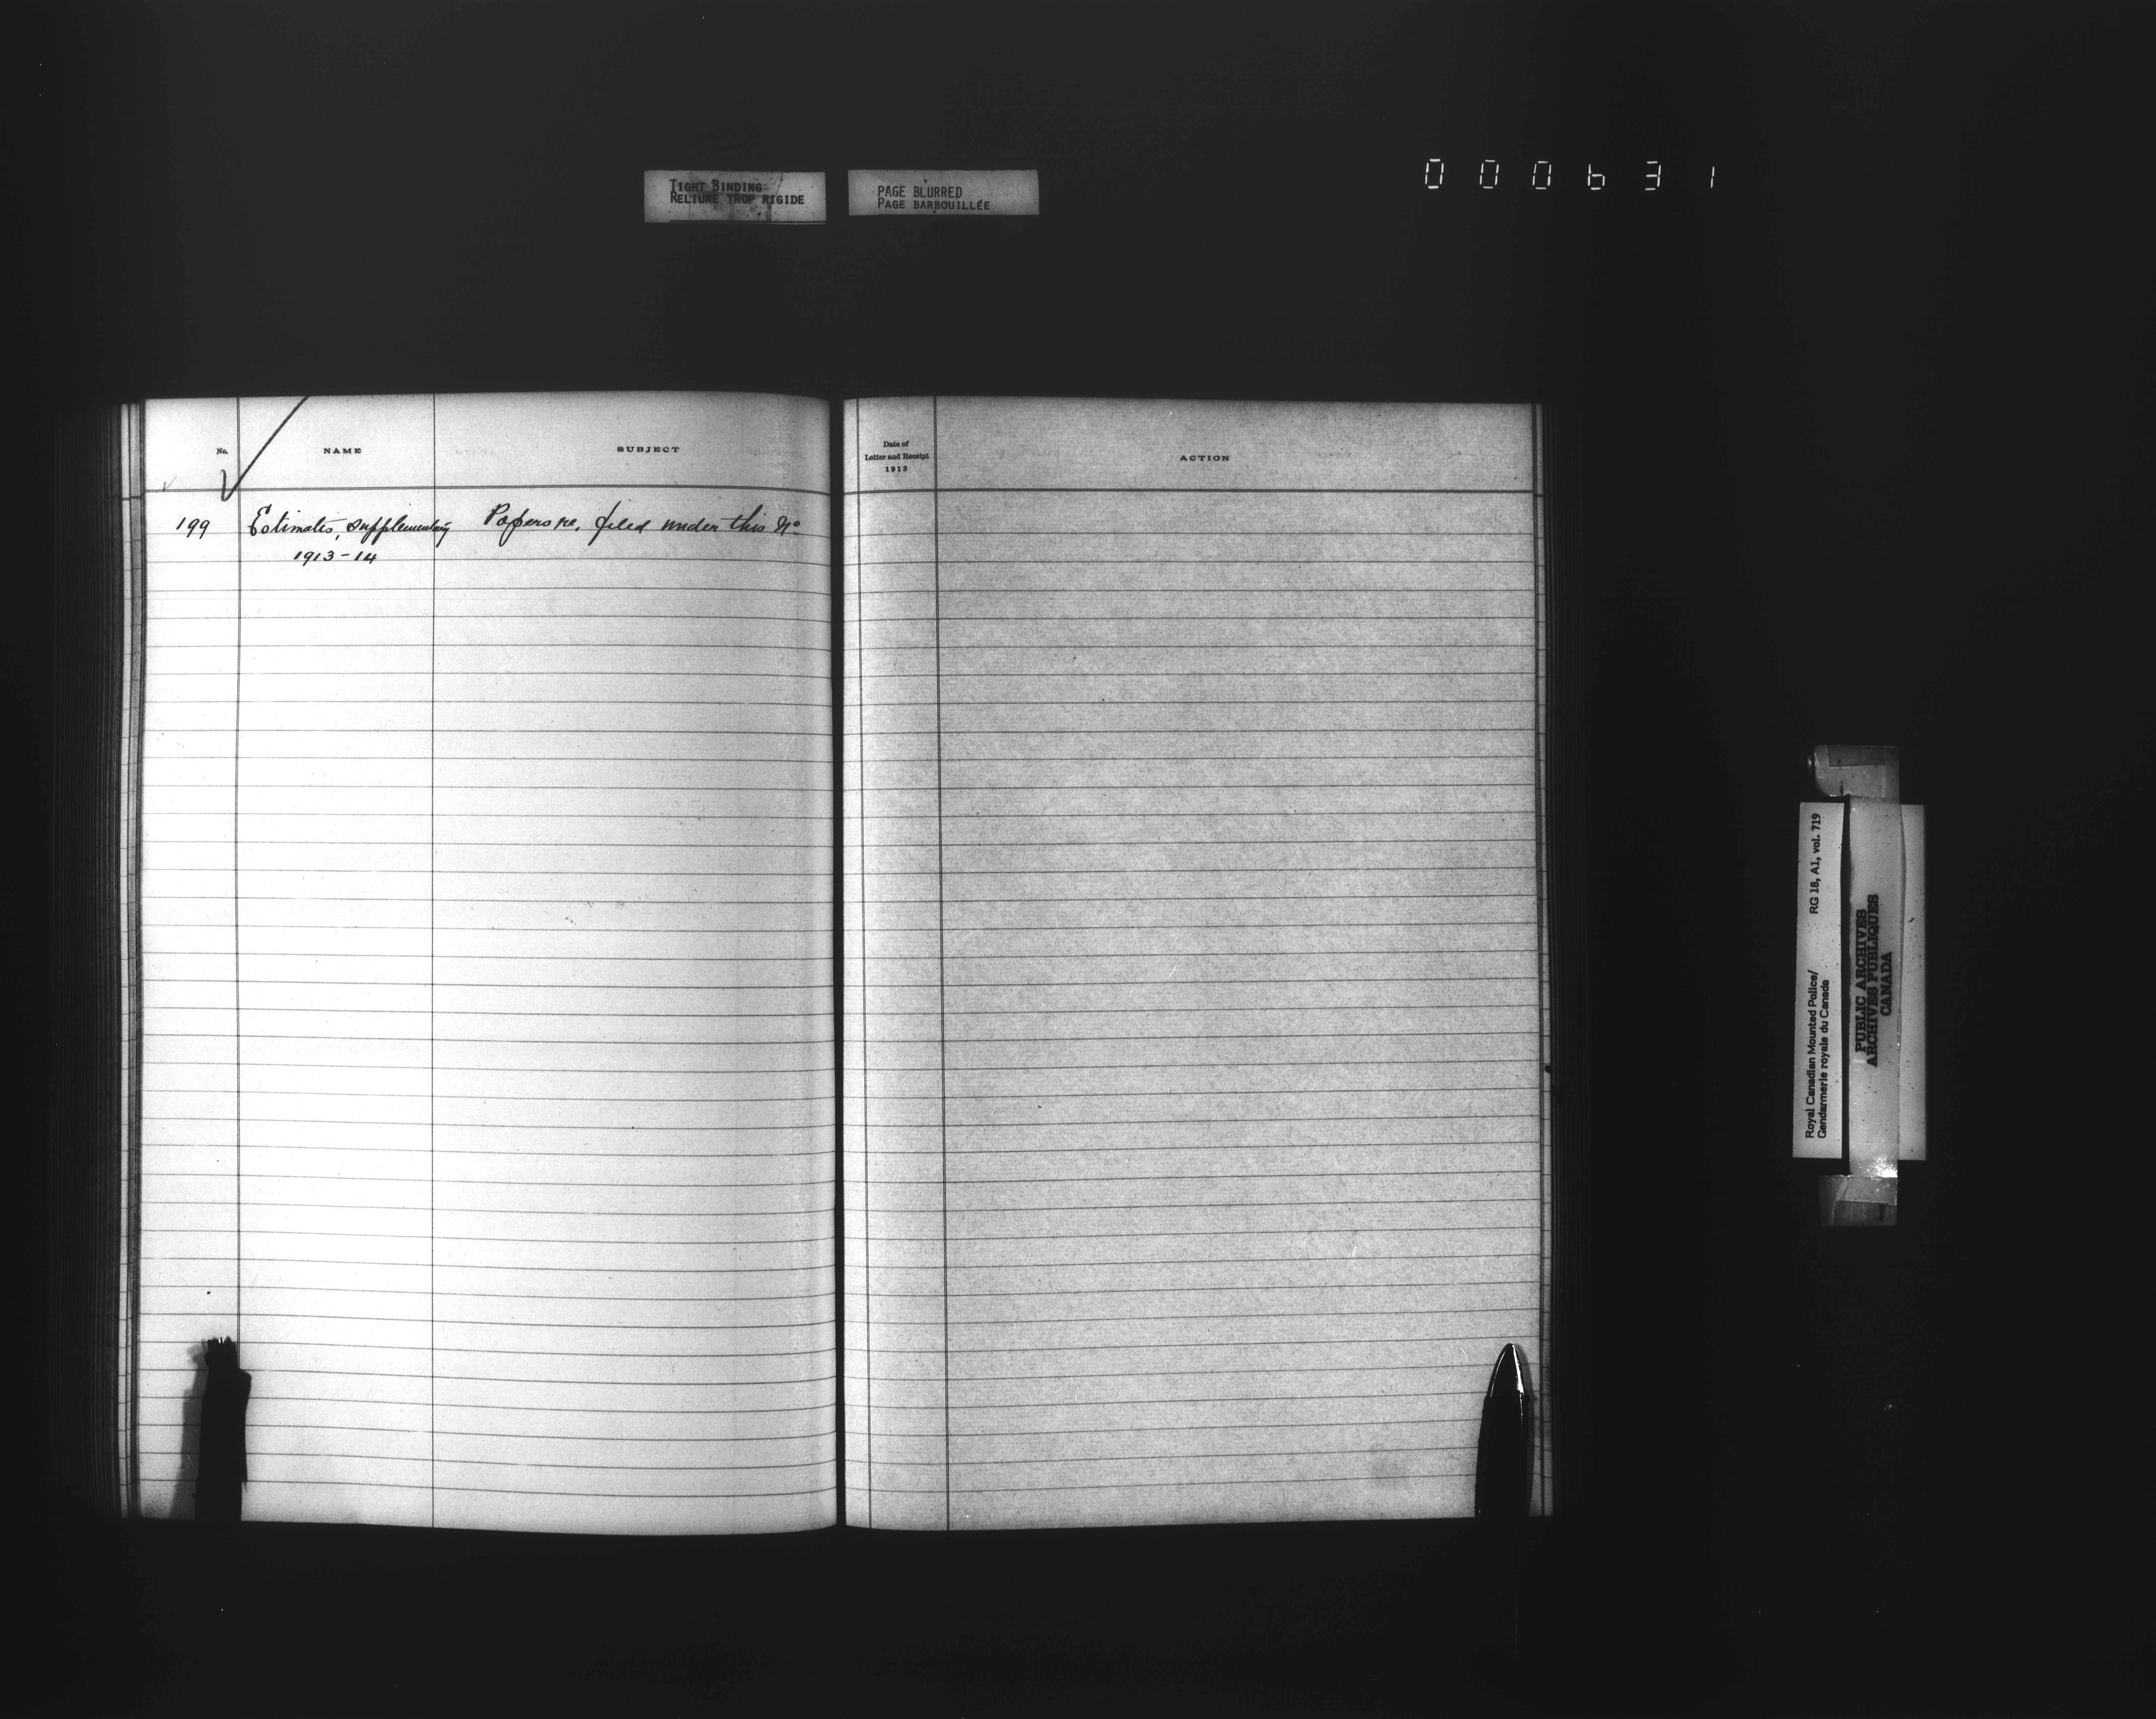 TIGHT BINDING
RELIURE TROP RIGIDE
PAGE BLURRED
PAGE BARBOUILLÉE
000631
No.
NAME
SUBJECT
Date of
Letter and Receipt
1913
ACTION
199 Estimates, supplementary Papers re, filed under this No
1913-14
Royal Canadian Mounted Police/ RG 18, A1, vol. 719
Gendarmerie royale du Canada
PUBLIC ARCHIVES
ARCHIVES PUBLIQUES
CANADA